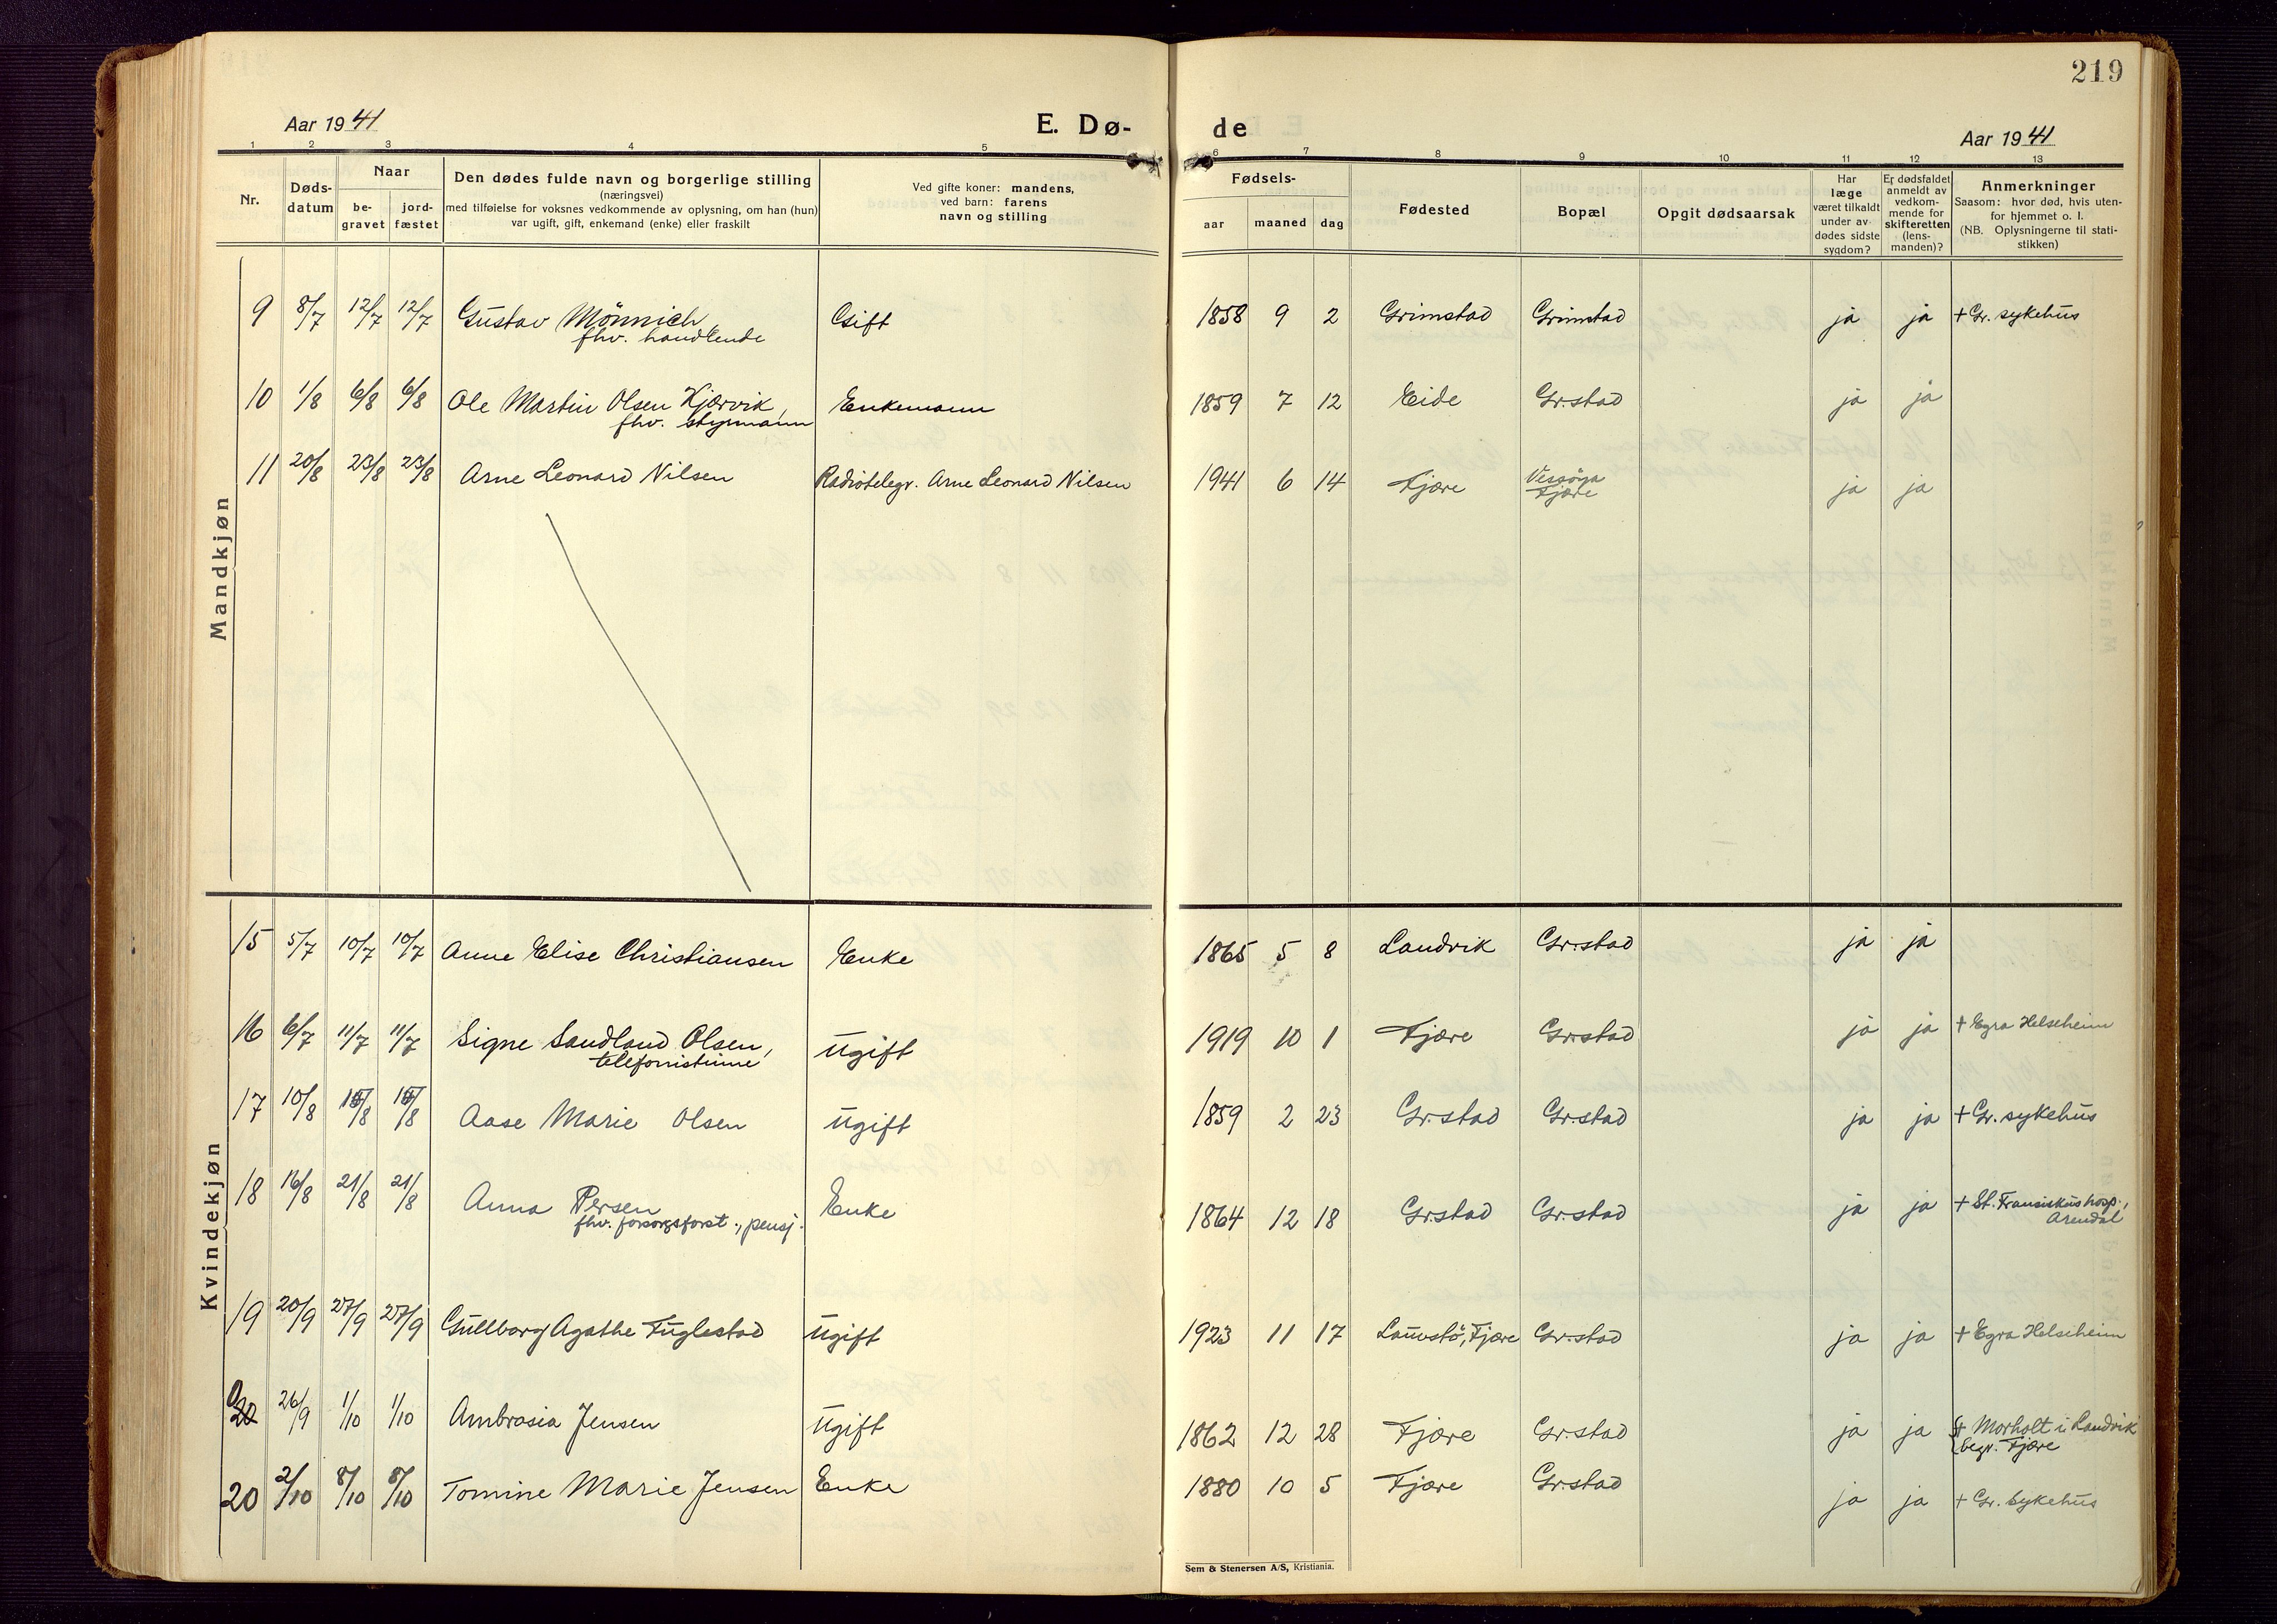 219
Aar 1941
E. Dø-
de
Aar 1941
1 2 3 4 5 6 7 8 9 10 11 12 13
Nr.
Døds-
datum
Naar
be-
gravet
jord-
fæstet
Den dødes fulde navn og borgerlige stilling
(næringsvei)
med tilføielse for voksnes vedkommende av oplysning, om han (hun)
var ugift, gift, enkemand (enke) eller fraskilt
Ved gifte koner: mandens,
ved barn: farens
navn og stilling
Fødsels-
aar maaned dag
Fødested
Bopæl
Opgit dødsaarsak
Har
læge
været tilkaldt
under av-
dødes sidste
sygdom?
Er dødsfaldet
anmeldt av
vedkom-
mende for
skifteretten
(lens-
manden)?
Anmerkninger
Saasom: hvor død, hvis uten-
for hjemmet o. l.
(NB. Oplysningerne til stati-
stikken)
Mandkjøn
9 8/7 12/7 12/7 Gustav Mönnich Gift 1858 9 2 Grimstad Grimstad ja ja + Gr. sykehus
fhv. handlende
10 1/8 6/8 6/8 Ole Martin Olsen Kjørvik, Enkemann 1859 7 12 Eide Gr.stad ja ja
fhv. styrmann
11 20/8 23/8 23/8 Arne Leonard Nilsen Radiotelegr. Arne Leonard Nilsen 1941 6 14 Fjære Vessøya ja ja
Fjære
Kvindekjøn
15 5/7 10/7 10/7 Anne Elise Christiansen Enke 1865 5 8 Landvik Gr.stad ja ja
16 6/7 11/7 11/7 Signe Sandland Olsen, Ugift 1919 10 1 Fjære Gr.stad ja ja + Egra Helseheim
telefonistinne
17 10/8 /8 /8 Aase Marie Olsen Ugift 1859 2 23 Gr.stad Gr.stad ja ja + Gr. sykehus
18 16/8 21/8 21/8 Anna Persen Enke 1864 12 18 Gr.stad Gr.stad ja ja + St. Fransiskus hosp.,
fhv. forsorgsforst., pensj. Arendal
19 20/9 27/9 27/9 Gullborg Agathe Fuglestad Ugift 1923 11 17 Fjære Gr.stad ja ja + Egra Helseheim
0 20 26/9 1/10 1/10 Ambrosia Jensen Ugift 1862 12 28 Fjære Gr.stad ja ja + Morholt i Landvik
begr. Fjære
20 2/10 8/10 8/10 Tomine Marie Jensen Enke 1880 10 5 Fjære Gr.stad ja ja + Gr. sykehus
Sem & Stenersen A/S, Kristiania.